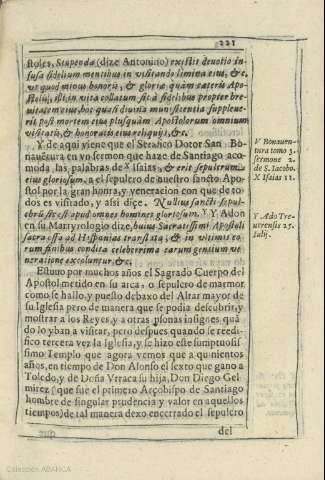 221
stoles, Stupenda (dize Antonino) existit deuotio in
fusa fidelium mentibus in visitando limina eius, &c.
vt quod minus honoris, & gloriæ quàm cæteris Apo-
stolis, isti, in vita collatum sit à fidelibus propter bre-
uitatem eius, hoc quasi diuina munificentia suppleue-
rit post mortem eius plusquàm Apostolorum omnium
visitatis, & honoratis eius reliquijs, &c.
Y de aqui viene que el Serafico Dotor San Bo-
nauentura en vn sermon que haze de Santiago aco-
moda, las palabras de X Isaias, & erit sepulcrum
eius gloriosum, a el sepulcro de nuestro sancto Apo-
stol por la gran honra, y veneracion con que de to-
dos es visitado, y assi dize. Nullius sancti sepul-
chrũ sic est apud omnes homines gloriosum. Y Y Adon
en su Martyrologio dize, huius Sacratissimi Apostoli
sacra ossa ad Hispanias translata; & in vltimis eo-
rum finibus condita celeberrima earum gentium ve-
neratione excoluntur, &c.
Estuuo por muchos años el Sagrado Cuerpo del
Apostol metido en su arca, o sepulcro de marmor
como se hallo, y puesto debaxo del Altar mayor de
su Iglesia pero de manera que se podia descubrir, y
mostrar a los Reyes, y a otras psonas insignes quã
do lo yban a visitar, pero despues quando se reedi-
fico tercera vez la Iglesia, y se hizo este sumptuosis
simo Templo que agora vemos que a quinientos
años, en tiempo de Don Alonso el sexto que gano a
Toledo, y de Doña Vrraca su hija, Don Diego Gel-
mirez (que fue el primero Arçobispo de Santiago
hombre de singular prudencia y valor en aquellos
tiempos) de tal manera dexo encerrado el sepulcro
del
V Bonauen-
tura tomo 3.
sermone 2.
de S. Iacobo.
X Isaias 11.
Y Ado Tre-
uerensis 25.
Iulij.
Colección ABANCA